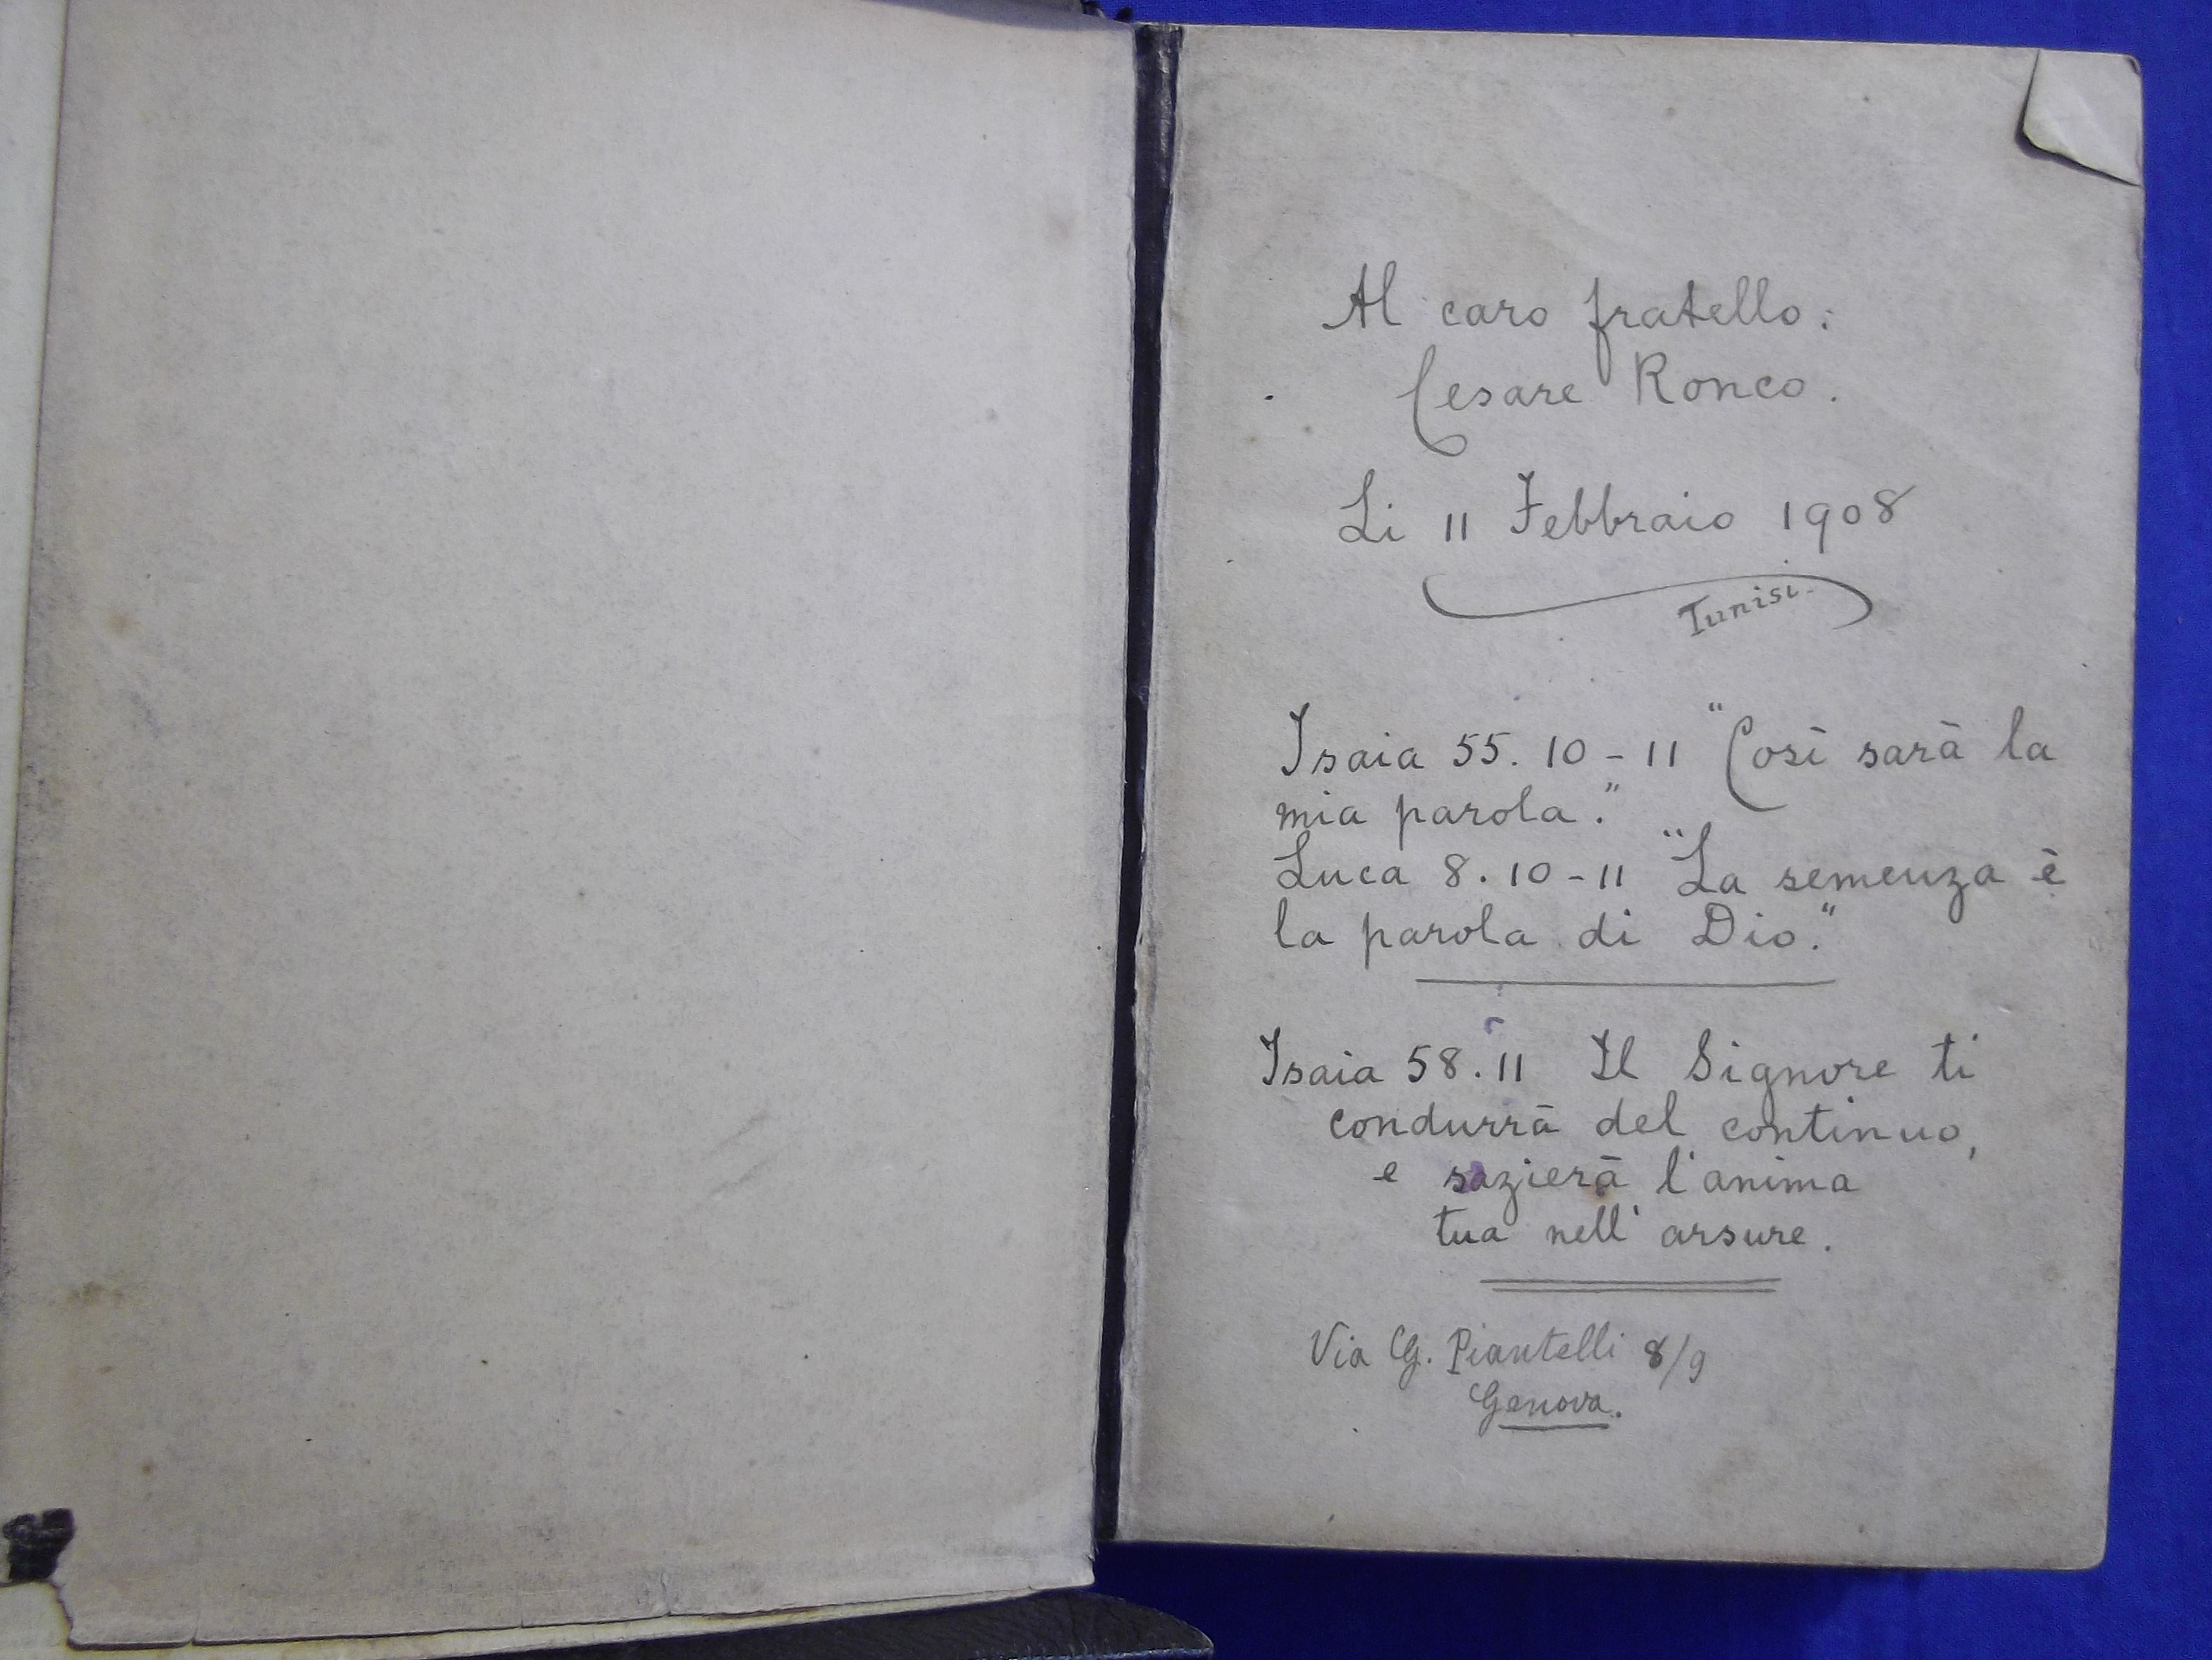 Al caro fratello:
Cesare Ronco.
Li 11 Febbraio 1908
Tunisi.
Isaia 55. 10 - 11 "Così sarà la
mia parola."
Luca 8. 10 - 11 "La semenza è
la parola di Dio."
Isaia 58. 11 Il Signore ti
condurrà del continuo,
e sazierà l'anima
tua nell' arsure.
Via G. Piantelli 8/9
Genova.